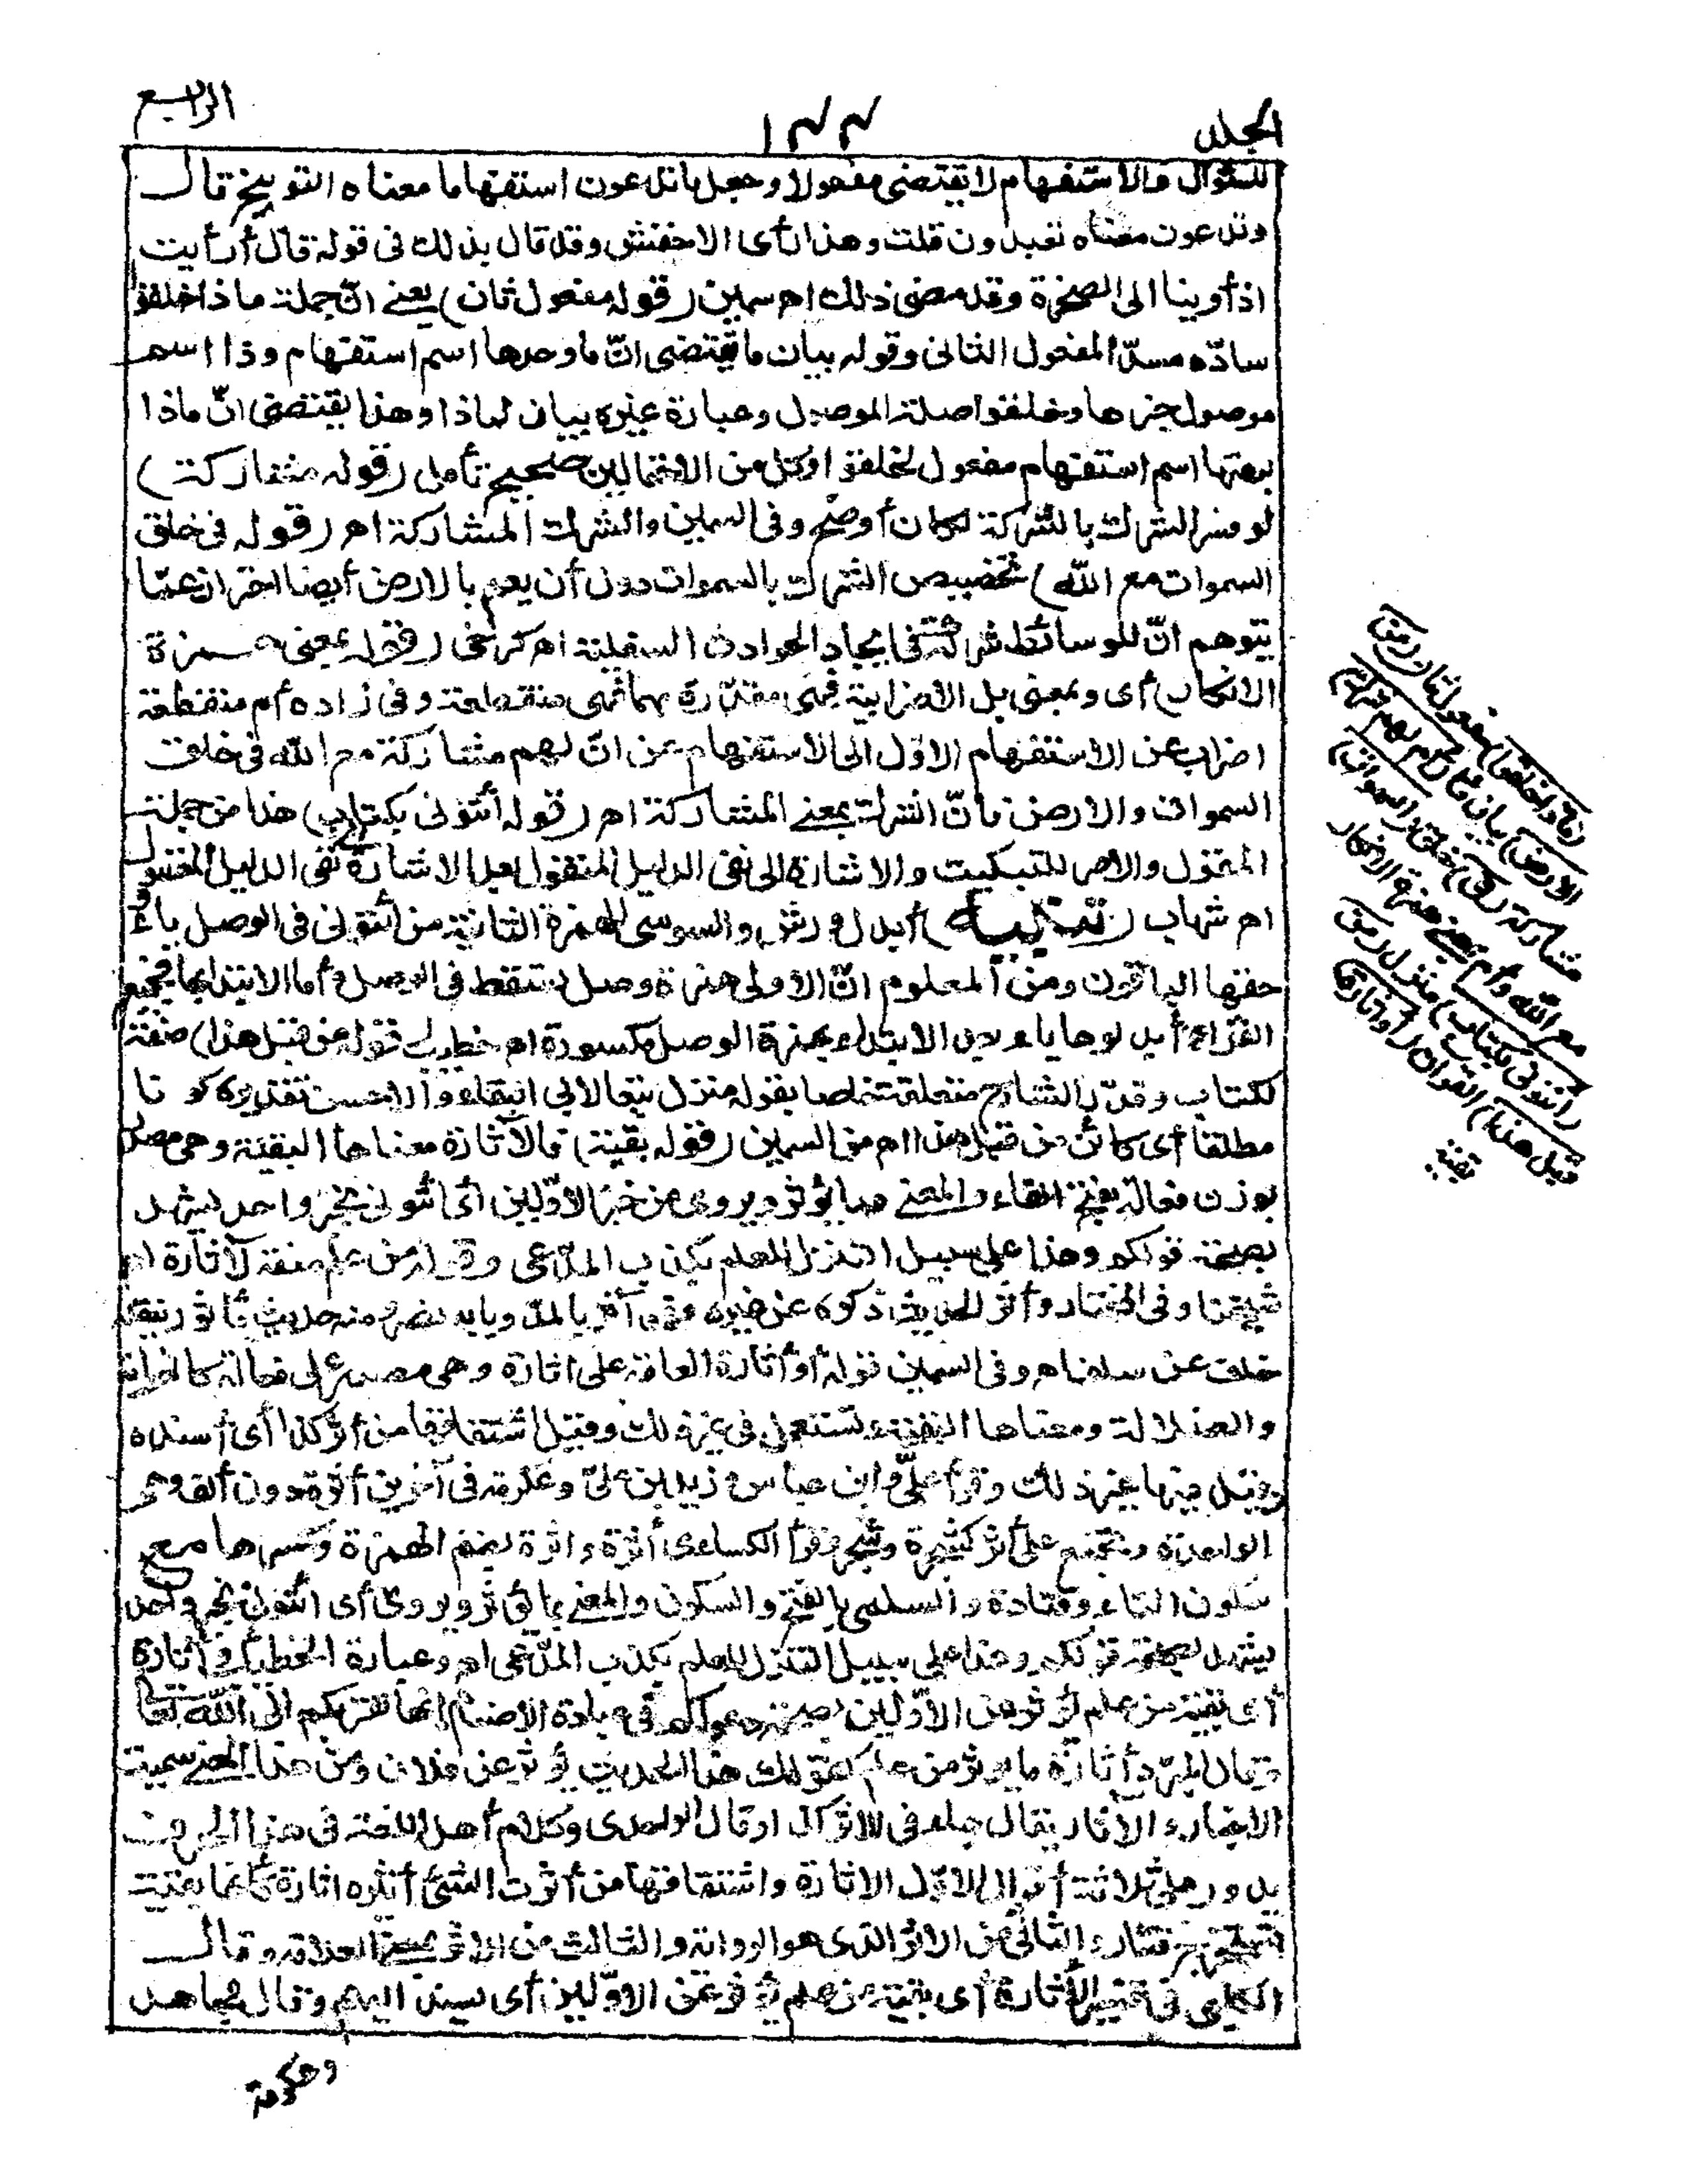 الرابع
١٢٢
الجلد
للسؤال والاستفهام لا تقتضى مفعولا وجعل ما تدعون استفهاما معناه التوبيخ قال
وتدعون معناه تعبدون قلت وهذا رأى الاخفش وقد قال بذلك فى قوله قال أرأيت
اذ أوينا الى الصخرة وقد مضى ذلك اهـ سمين (قوله مفعول ثان) يعنے انّ جملة ماذا خلقوا
سادّه مسدّ المفعول الثانى وقوله بيان ما يقتضى انّ ما وحدها اسم استفهام وذا اسم
موصول خبرها وخلقوا صلة الموصول وعبارة غيره بيان لماذا وهذا يقتضى انّ ماذا
برمتها اسم استفهام مفعول لخلقوا وكل من الاحتمالين صحيح تأمل (قوله مشاركة)
لو فسر الشرك بالشركة لكان أوضح وفى السمين والشرك المشاركة اهـ (قوله فى خلق
السموات مع الله) تخصيص الشرك بالسموات دون أن يعم بالارض أيضا احتراز عمّا
يتوهم انّ للوسائط شركة فى ايجاد الحوادث السفلية اهـ كرخى (قوله بمعنى همزة
الانكار) أى وبمعنى بل الاضرابية فهى مقدّرة بهما فهى منقطعة وفى زاده أم منقطعة
اضراب عن الاستفهام الاوّل الى الاستفهام عن انّ لهم مشاركة مع الله فى خلق
السموات والارض فانّ الشرك بمعنے المشاركة اهـ (قوله أئتونى بكتاب) هذا من جملة
المقول والامر للتبكيت والاشارة الى نفى الدليل المنقول بعد الاشارة الى نفى الدليل المعقول
اهـ شهاب (تنبيه) أبدل ورش والسوسى الهمزة الثانية من أئتونى فى الوصل ياء و
حققها الباقون ومن المعلوم انّ الاولى همزة وصل تسقط فى الوصل وأما الابتداء بها فجميع
القرّاء أبدلوها ياء بعد الابتداء بهمزة الوصل مكسورة اهـ خطيب (قوله من قبل هذا) صفة
لكتاب وقدّر الشارح متعلقه خاصا بقوله منزل تبعا لابى البقاء والاحسن تقديره كونا
مطلقا أى كائن من قبل هذا اهـ من السمين (قوله بقية) فالاثارة معناها البقية وهى مصدر
بوزن فعالة بفتح الفاء والمعنے مما يؤثر ويروى من خبر الاوّلين أى ائتونى بخبر واحد يشهد
بصحة قولكم وهذا على سبيل التنزل للعلم بكذب المدّعى وقوله من علم صفة لاثارة اهـ
شيخنا وفى المختار وأثر الحديث ذكره عن غيره فهو آثر بالمدّ وبابه نصر ومنه حديث مأثور ينقله
خلف عن سلف اهـ وفى السمين قوله أو أثارة العامّة على اثارة وهى مصدر على فعالة كالغواية
والضلالة ومعناها البقية وتستعمل فى غير ذلك وقيل اشتقاقها من أثر كذا أى أسنده
وقيل فيها غير ذلك وقرأ علىّ وابن عباس وزيد بن علىّ وعكرمة فى آخرين أثرة دون ألف وهى
الواحدة وتجمع على أثر كقترة وقتر وقرأ الكسائى أثرة واثرة بضم الهمزة وكسرها مع
سكون الثاء وقتادة والسلمى بالفتح والسكون والمعنے بما يؤثر ويروى أى ائتونى بخبر واحد
يشهد بصحة قولكم وهذا على سبيل التنزل للعلم بكذب المدّعى اهـ وعبارة الخطيب أو أثارة
أى بقية من علم يؤثر عن الاوّلين بصحة دعواكم فى عبادة الاصنام انها تقرّبكم الى الله تعالى
وقال المبرّد أثارة ما يؤثر من علم كقولك هذا الحديث يؤثر عن فلان ومن هذا المعنے سميت
الاخبار والاثار يقال جاء فى الاثر كذا وقال الواحدى وكلام أهل اللغة فى هذا الحرف
يدور على ثلاثة أقوال الاوّل الاثارة واشتقاقها من أثرت الشئ أثيره اثارة كأنها بقية
تستخرج فتثار والثانى من الاثر الذى هو الرواية والثالث من الاثر بمعنے العلامة وقال
الكلبى فى تفسير الأثارة أى بقية من علم يؤثر عن الاوّلين أى يسند اليهم وقال مجاهد
وعكرمة
(ماذا خلقوا) مفعول ثان (من
الارض) بيان ما (أم لهم شرك)
مشاركة (فى) خلق (السموات)
مع الله وأم بمعنے همزة الانكار
(ائتونى بكتاب) منزل (من
قبل هذا) القرآن (أو أثارة)
بقية